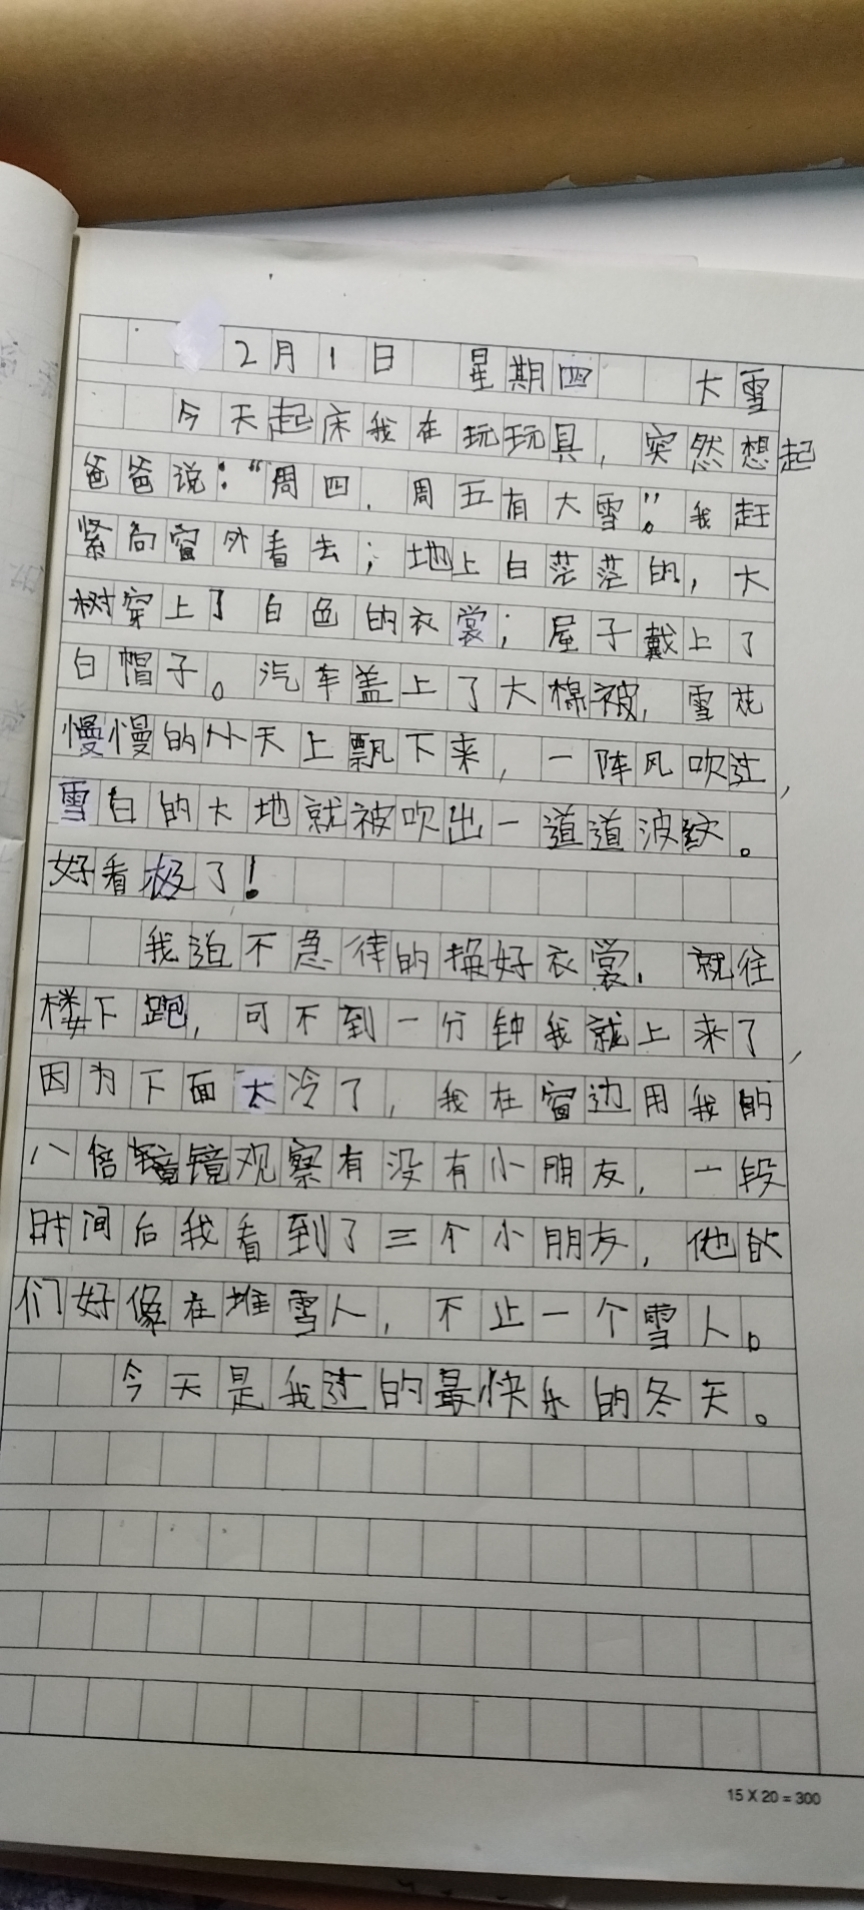 2月1日 星期四 大雪
今天起床我在玩玩具,突然想起
爸爸说:“周四,周五有大雪”。我赶
紧向窗外看去;地上白茫茫的,大
树穿上了白色的衣裳;屋子戴上了
白帽子。汽车盖上了大棉被,雪花
慢慢的从天上飘下来,一阵风吹过,
雪白的大地就被吹出一道道波纹。
好看极了!
我迫不急待的换好衣裳,就往
楼下跑,可不到一分钟我就上来了,
因为下面太冷了,我在窗边用我的
八倍镜观察有没有小朋友,一段
时间后我看到了三个小朋友,他
们好像在堆雪人,不止一个雪人。
今天是我过的最快乐的冬天。
15 X 20 = 300